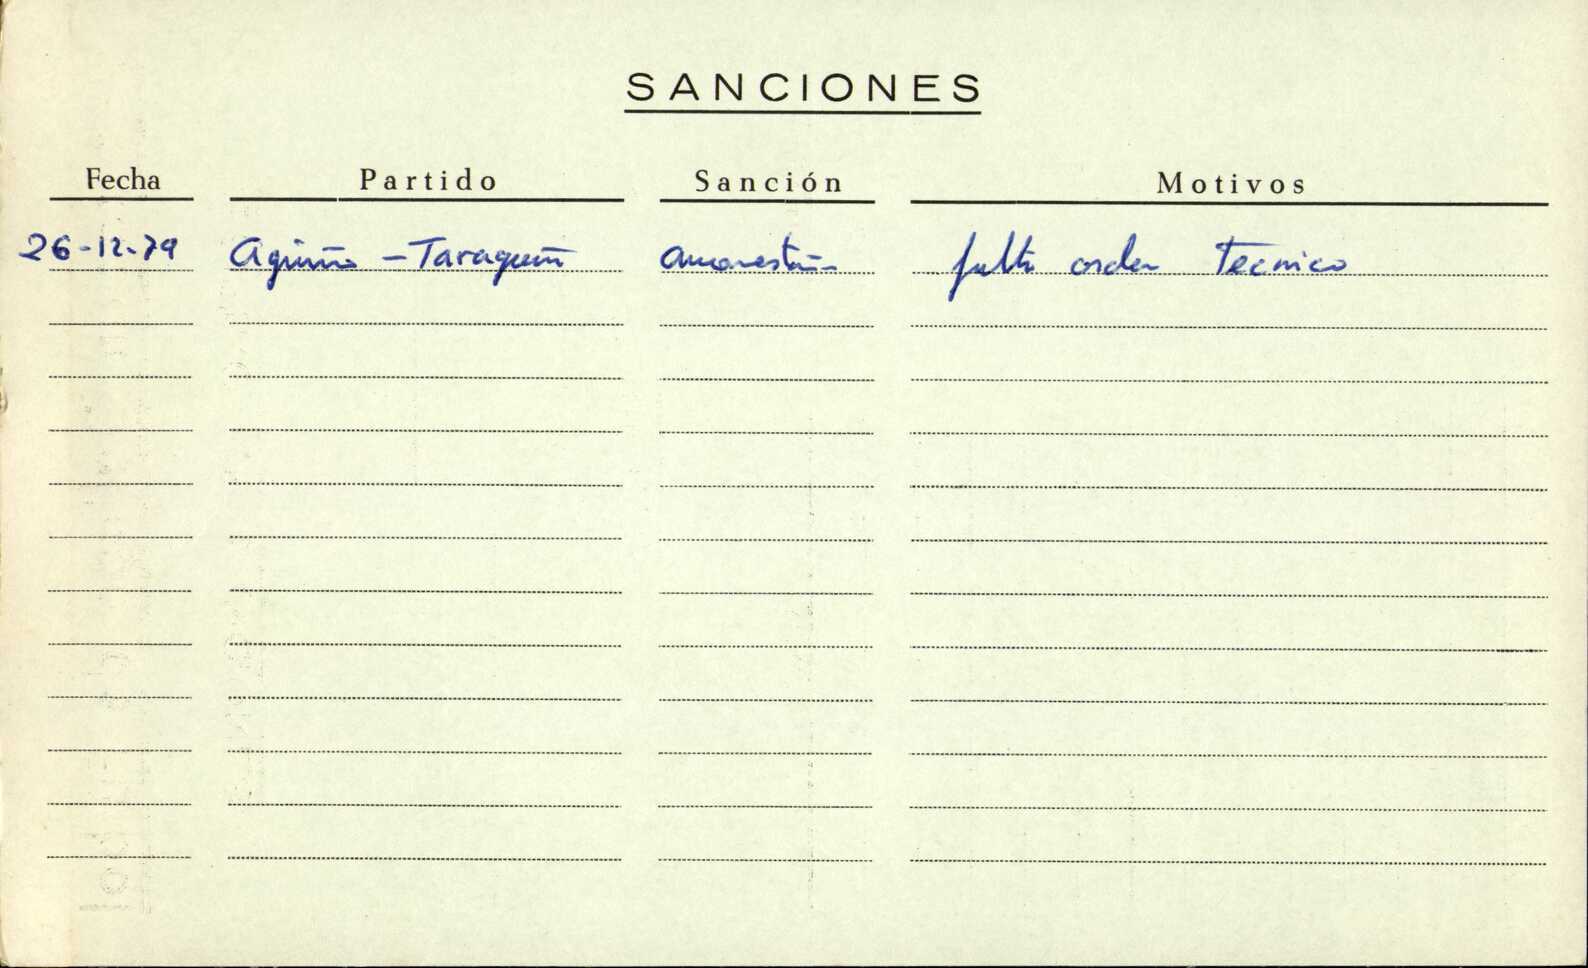 SANCIONES
Fecha Partido Sanción Motivos
26-12-79 Aguiño - Taragoña amonestación falta orden Tecnico